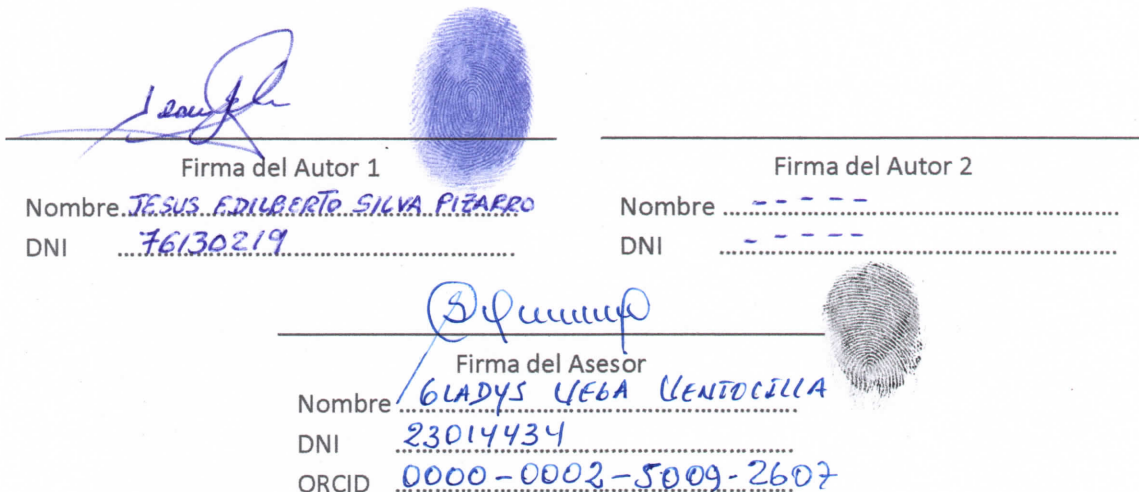 Firma del Autor 1
Nombre JESUS EDILBERTO SILVA PIZARRO
DNI 76130219
Firma del Autor 2
Nombre - - - - -
DNI - - - - -
Firma del Asesor
Nombre GLADYS VEGA VENTOCILLA
DNI 23014434
ORCID 0000-0002-5009-2607